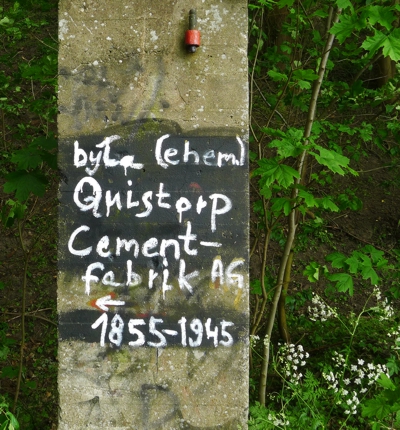 była (ehem.)
Quistorp
Cement-
fabrik AG
←
1855-1945